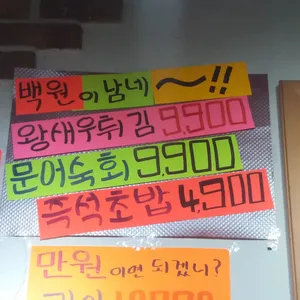 백원이 남네~!!
왕새우튀김 9,900
문어숙회 9,900
즉석초밥 4,900
만원이면 되겠니?